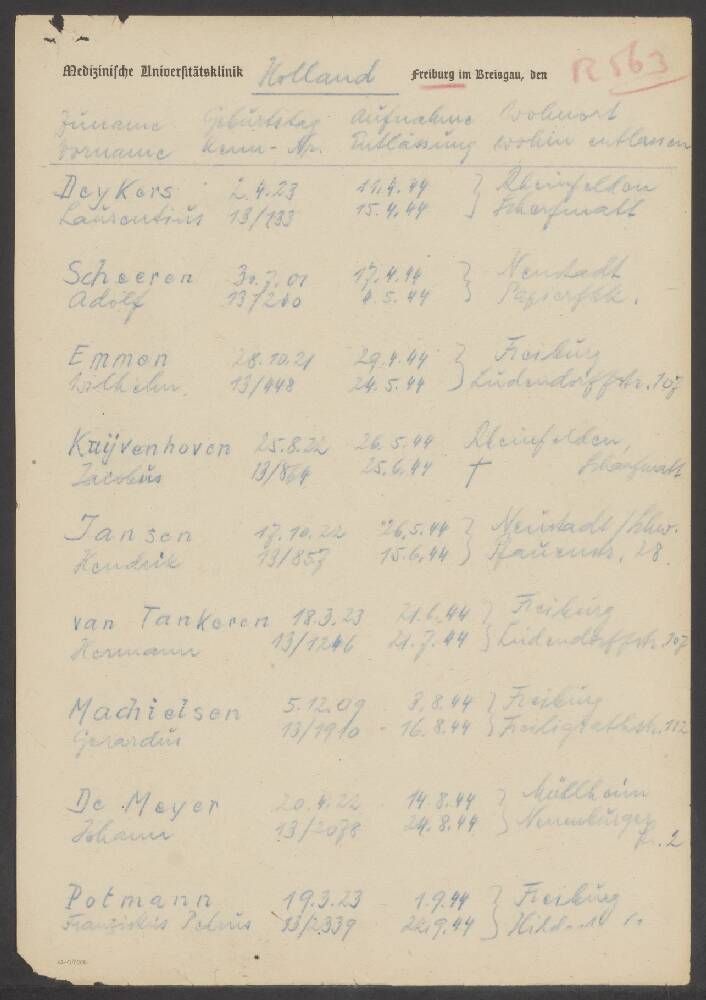 Medizinische Universitätsklinik Holland Freiburg im Breisgau, den R 563
Zuname Geburtstag Aufnahme Wohnort
Vorname Kenn-Nr. Entlassung wohin entlassen
DeyKers 2.4.23 11.4.44 } Rheinfelden
Laurentius 13/133 15.4.44
Scheeren 30.7.01 17.4.44 } Neustadt
Adolf 13/210 4.5.44 Papierfbk.
Emmen 28.10.21 29.4.44 } Freiburg
Wilhelm 13/448 24.5.44 Ludendorffstr. 107
Kuijvenhoven 25.8.22 26.5.44 Rheinfelden,
Jacobus 13/864 25.6.44 †
Jansen 17.10.22 26.5.44 } Neustadt/Schw.
Hendrik 13/857 15.6.44 28
van Tankeren 18.3.23 21.6.44 } Freiburg
Hermann 13/1246 21.7.44 Ludendorffstr. 107
Machielsen 5.12.09 3.8.44 } Freiburg
Gerardus 13/1910 - 16.8.44 Freiligrathstr. 112
De Meyer 20.4.22 14.8.44 } Müllheim
Johann 13/2078 24.8.44 Neuenburger
Str. 2
Potmann 19.3.23 1.9.44 } Freiburg
Franziskus Petrus 13/2339 22.9.44